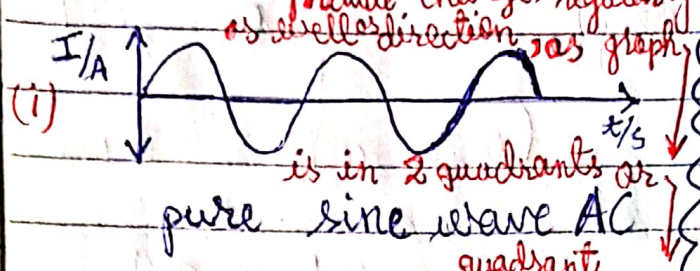 as well as direction, as graph
I/A
(i)
t/s
is in 2 quadrants or
pure sine wave AC
quadrant